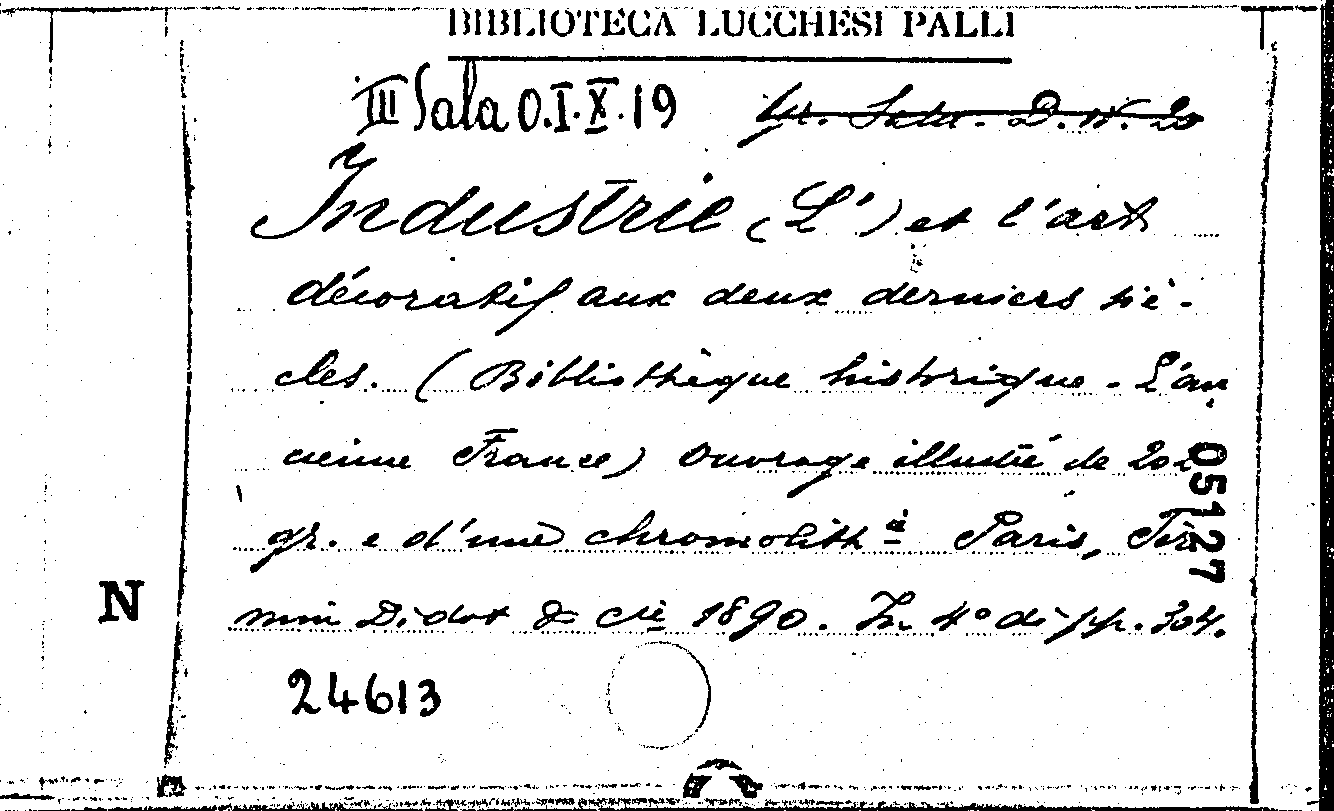 BIBLIOTECA LUCCHESI PALLI
III Sala O.I.X.19 Gr. Sala. D. IV. 20
Industrie (L') et l'art
décoratif aux deux derniers siè-
cles. (Bibliothèque historique - L'an
cienne France) Ouvrage illustré de 202
gr. e d'une chromolith.ie Paris, Fir
min Didot & Cie 1890. In 4° di pp. 304.
05127
N
24613